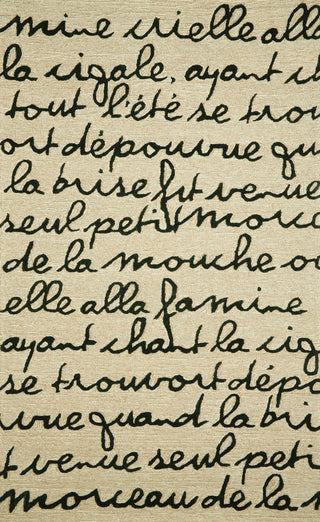 mine crielle alla
la cigale, ayant ch
tout l'été se trou
ort dépourvue qu
la brise fut venue
seul petit morcea
de la mouche ou
elle alla famine
ayant chant la cig
se trouvort dépo
uvue quand la bri
t venue seul peti
morceau de la m